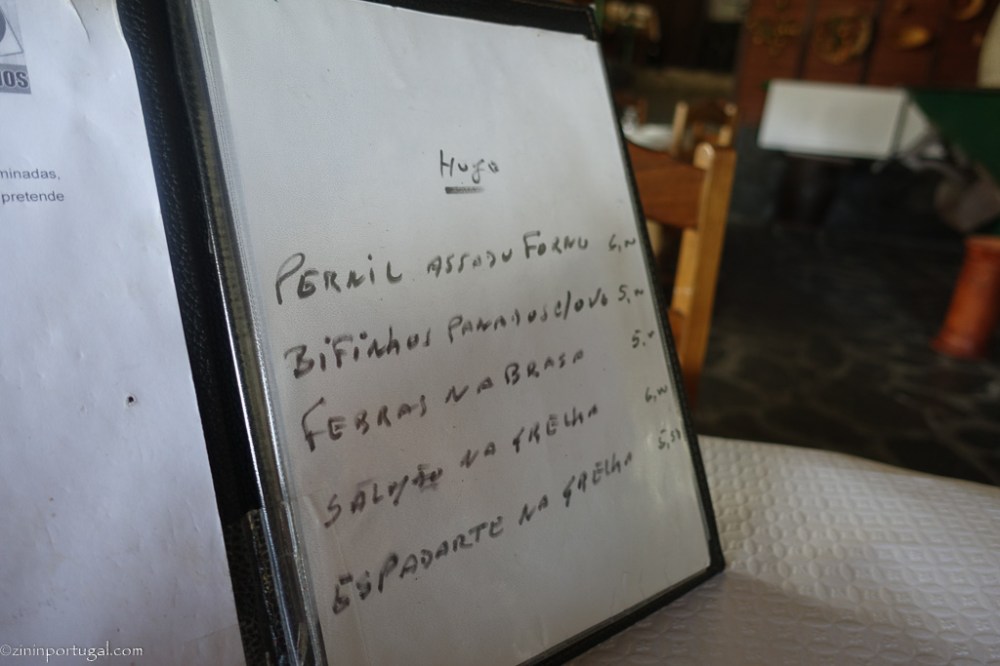 IOS
minadas,
pretende
Hugo
PERNIL ASSADO FORNO 6,00
BIFINHOS PANADOS C/OVO 5,00
FEBRAS NA BRASA 5,00
SALMÃO NA GRELHA 6,00
ESPADARTE NA GRELHA 5,50
©zininportugal.com